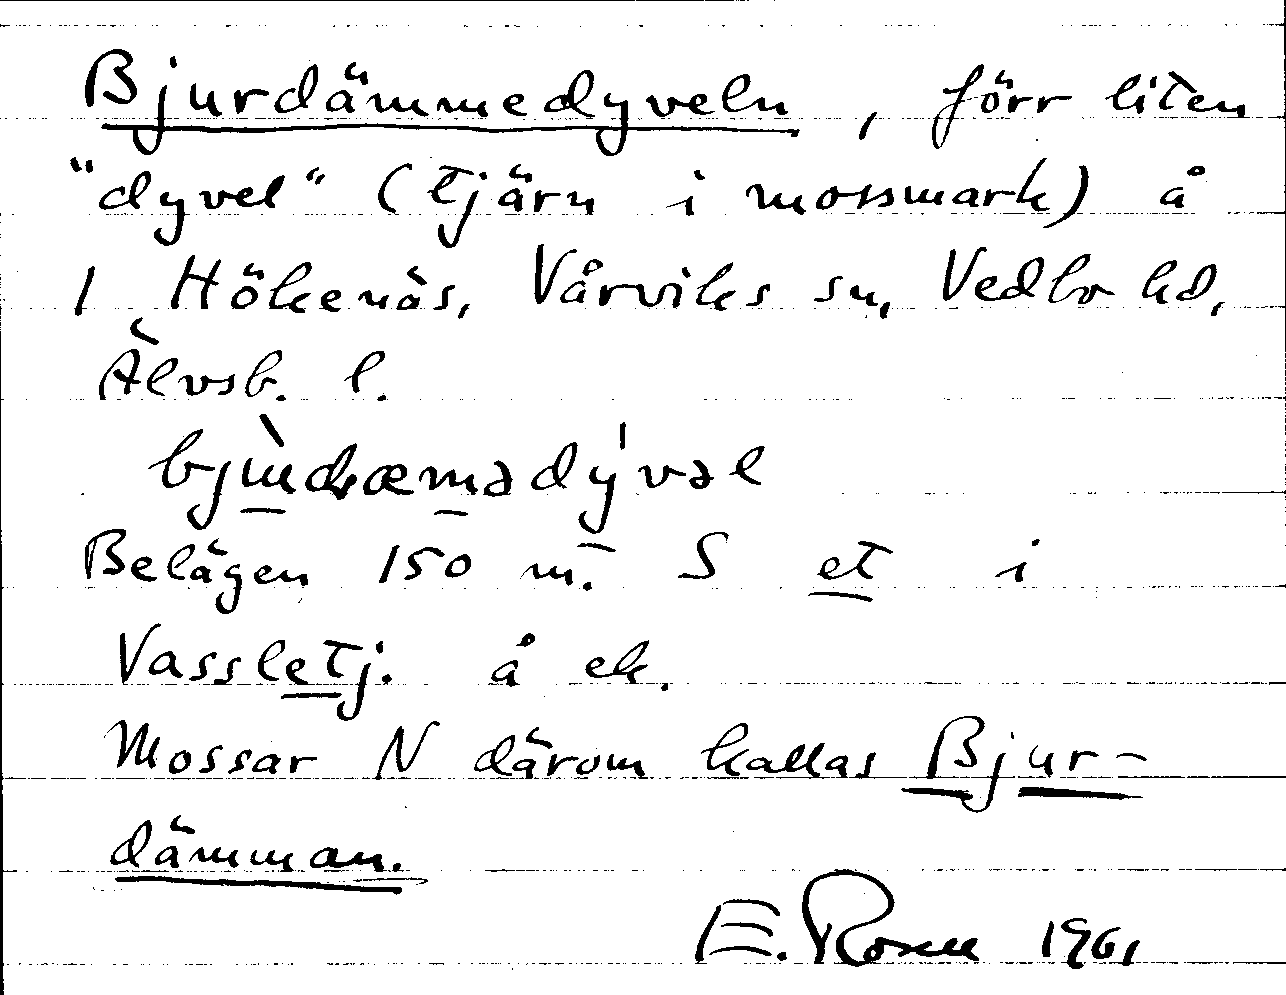 Bjurdämmedyveln, förr liten
"dyvel" (tjärn i mossmark) å
1 Hökenäs, Vårviks sn, Vedbo hd,
Älvsb. l.
Belägen 150 m. S et i
Vassletj. å ek.
Mossar N därom kallas Bjur-
dämman.
E. Rosen 1961